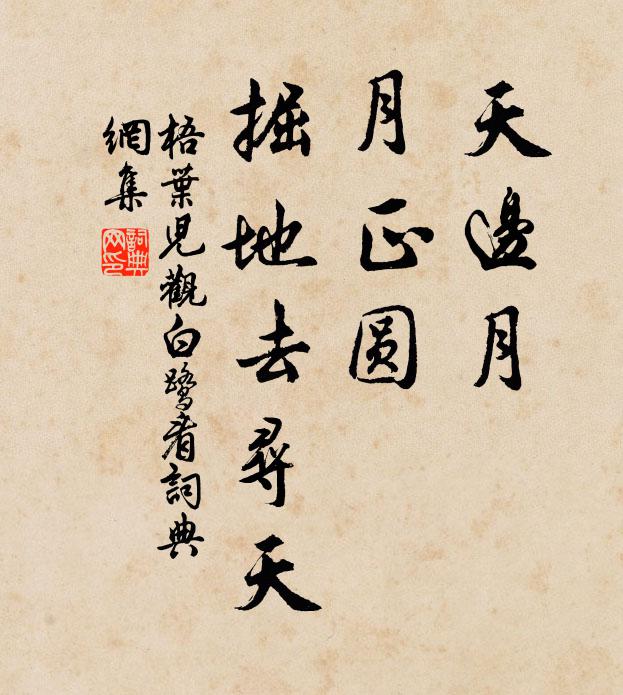 天邊月
月正圓
掘地去尋天
梧葉児觀白鹭者詞典
網集
詞典网印